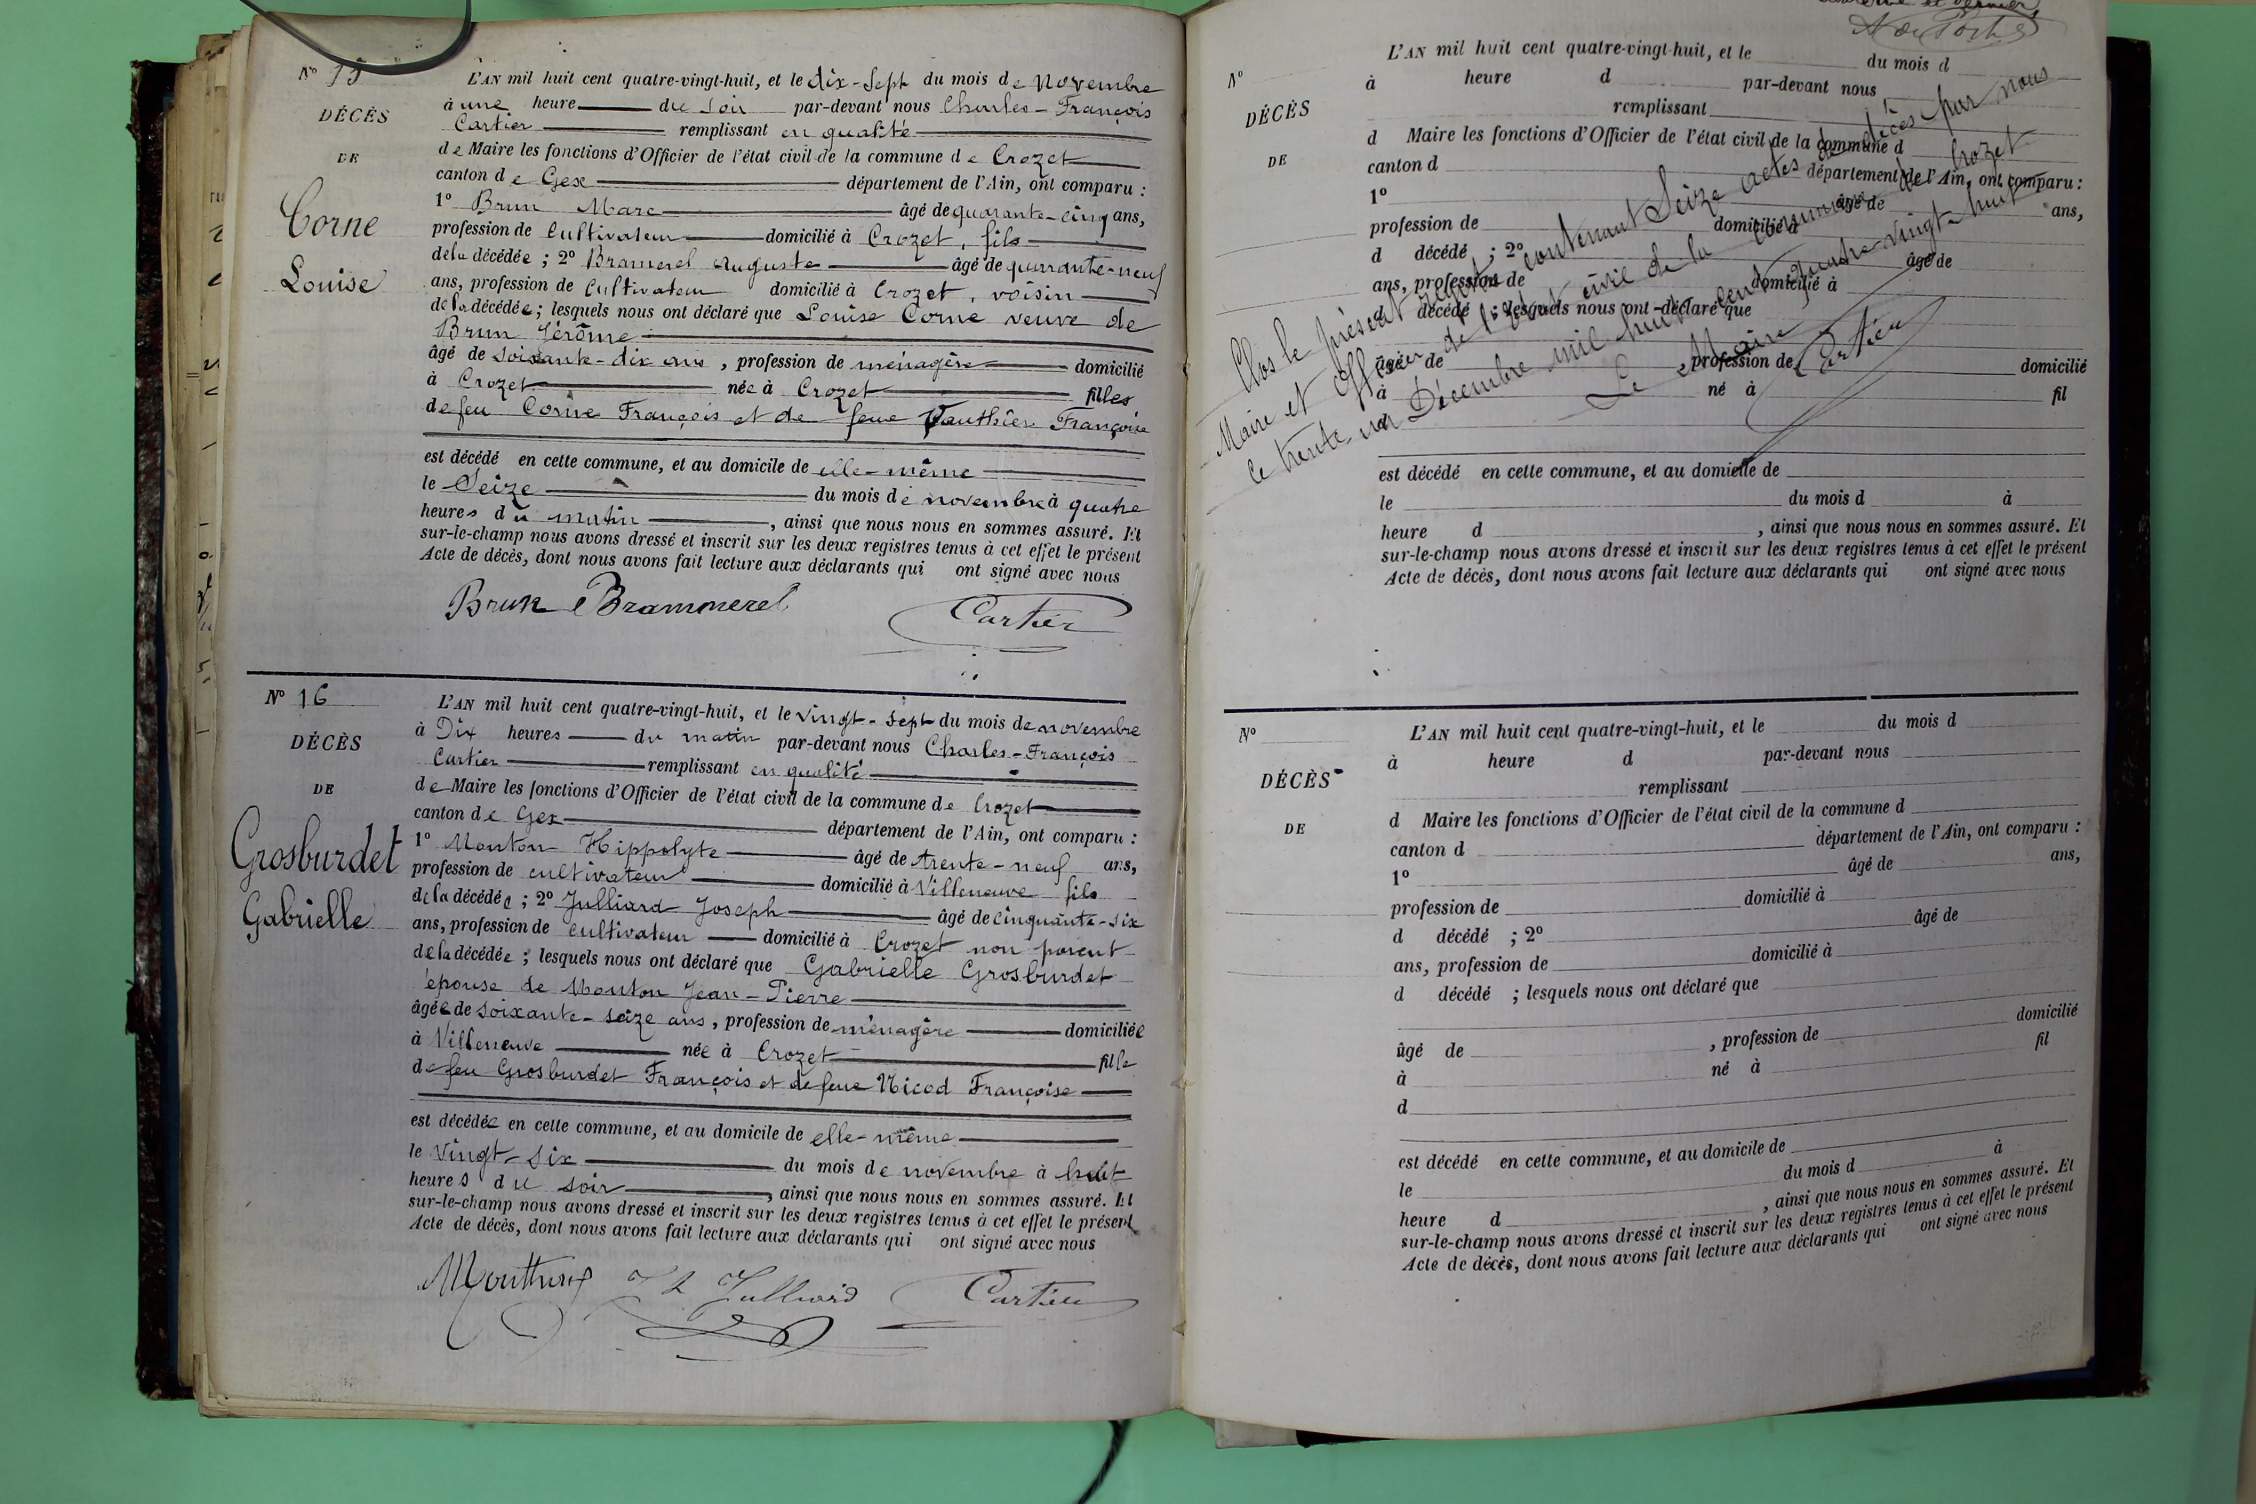 N° 15
DÉCÈS
DE
Corne
Louise
L'AN mil huit cent quatre-vingt-huit, et le dix-sept du mois de novembre
à une heure du soir par-devant nous Charles-François
Cartier remplissant en qualité
de Maire les fonctions d'Officier de l'état civil de la commune de Crozet
canton de Gex département de l'Ain, ont comparu :
1° Brun Marc âgé de quarante-cinq ans,
profession de cultivateur domicilié à Crozet, fils
de la décédée ; 2° Bramerel Auguste âgé de quarante-neuf
ans, profession de cultivateur domicilié à Crozet, voisin
de la décédée ; lesquels nous ont déclaré que Louise Corne veuve de
Brun Jérôme
âgé de soixante-dix ans, profession de ménagère domicilié
à Crozet née à Crozet filles
de feu Corne François et de feue Vauthier Françoise
est décédé en cette commune, et au domicile de elle-même
le Seize du mois de novembre à quatre
heures du matin, ainsi que nous nous en sommes assuré. Et
sur-le-champ nous avons dressé et inscrit sur les deux registres tenus à cet effet le présent
Acte de décès, dont nous avons fait lecture aux déclarants qui ont signé avec nous
Brun Brammerel Cartier
N° 16
DÉCÈS
DE
Grosburdet
Gabrielle
L'AN mil huit cent quatre-vingt-huit, et le vingt-sept du mois de novembre
à Dix heures du matin par-devant nous Charles-François
Cartier remplissant en qualité
de Maire les fonctions d'Officier de l'état civil de la commune de Crozet
canton de Gex département de l'Ain, ont comparu :
1° Mouton Hippolyte âgé de trente-neuf ans,
profession de cultivateur domicilié à Villeneuve fils
de la décédée ; 2° Julliard Joseph âgé de cinquante-six
ans, profession de cultivateur domicilié à Crozet non parent
de la décédée ; lesquels nous ont déclaré que Gabrielle Grosburdet
épouse de Mouton Jean-Pierre
âgée de soixante-seize ans, profession de ménagère domiciliée
à Villeneuve née à Crozet fille
de feu Grosburdet François et de feue Nicod Françoise
est décédée en cette commune, et au domicile de elle-même
le Vingt-six du mois de novembre à huit
heures du soir, ainsi que nous nous en sommes assuré. Et
sur-le-champ nous avons dressé et inscrit sur les deux registres tenus à cet effet le présent
Acte de décès, dont nous avons fait lecture aux déclarants qui ont signé avec nous
Julliard Cartier
et dernier
N°
DÉCÈS
DE
L'AN mil huit cent quatre-vingt-huit, et le du mois d
à heure d par-devant nous
remplissant
d Maire les fonctions d'Officier de l'état civil de la commune d
canton d département de l'Ain, ont comparu :
1° âgé de ans,
profession de domicilié à
d décédé ; 2° âgé de
ans, profession de domicilié à
d décédé ; lesquels nous ont déclaré que
âgé de , profession de domicilié
à né à fil
d
est décédé en cette commune, et au domicile de
le du mois d à
heure d , ainsi que nous nous en sommes assuré. Et
sur-le-champ nous avons dressé et inscrit sur les deux registres tenus à cet effet le présent
Acte de décès, dont nous avons fait lecture aux déclarants qui ont signé avec nous
Clos le présent registre contenant Seize actes de décès par nous
Maire et Officier de l'état civil de la commune de Crozet
le trente un Décembre mil huit cent quatre-vingt-huit
Le Maire Cartier
N°
DÉCÈS
DE
L'AN mil huit cent quatre-vingt-huit, et le du mois d
à heure d par-devant nous
remplissant
d Maire les fonctions d'Officier de l'état civil de la commune d
canton d département de l'Ain, ont comparu :
1° âgé de ans,
profession de domicilié à
d décédé ; 2° âgé de
ans, profession de domicilié à
d décédé ; lesquels nous ont déclaré que
âgé de , profession de domicilié
à né à fil
d
est décédé en cette commune, et au domicile de
le du mois d à
heure d , ainsi que nous nous en sommes assuré. Et
sur-le-champ nous avons dressé et inscrit sur les deux registres tenus à cet effet le présent
Acte de décès, dont nous avons fait lecture aux déclarants qui ont signé avec nous